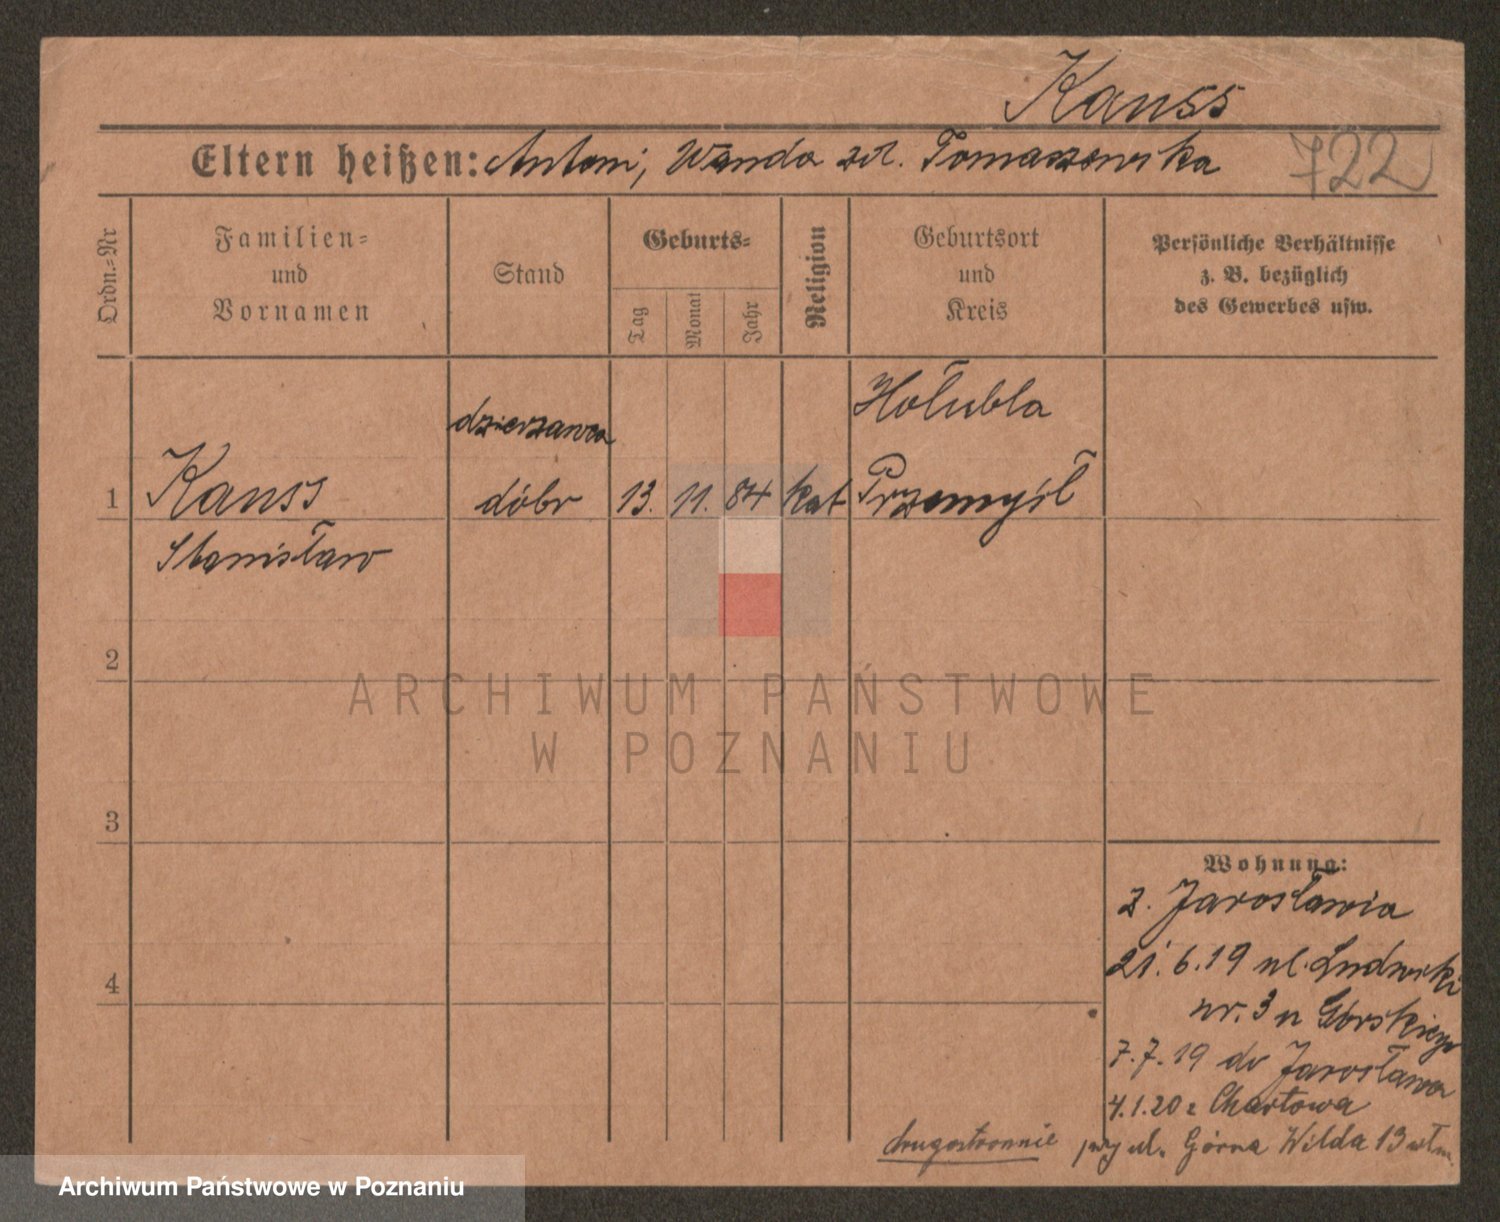 Kauss
Eltern heißen: Antoni, Wanda zd. Tomaszewska
722
Ordn.=Nr
Familien=
und
Vornamen
Stand
Geburts=
Tag
Monat
Jahr
Religion
Geburtsort
und
Kreis
Persönliche Verhältnisse
z. B. bezüglich
des Gewerbes usw.
dzierzawca
Hołubla
1
Kauss
dóbr
13.
11.
84
kat
Przemyśl
Stanisław
2
ARCHIWUM PAŃSTWOWE
W POZNANIU
3
4
Wohnung:
z. Jarosławia
21.6.19 ul. Ludwiki
nr. 3 u Górskiego
7.7.19 do Jarosławia
4.1.20 z Chartowa
drugostronnie
przy ul. Górna Wilda 13
Archiwum Państwowe w Poznaniu